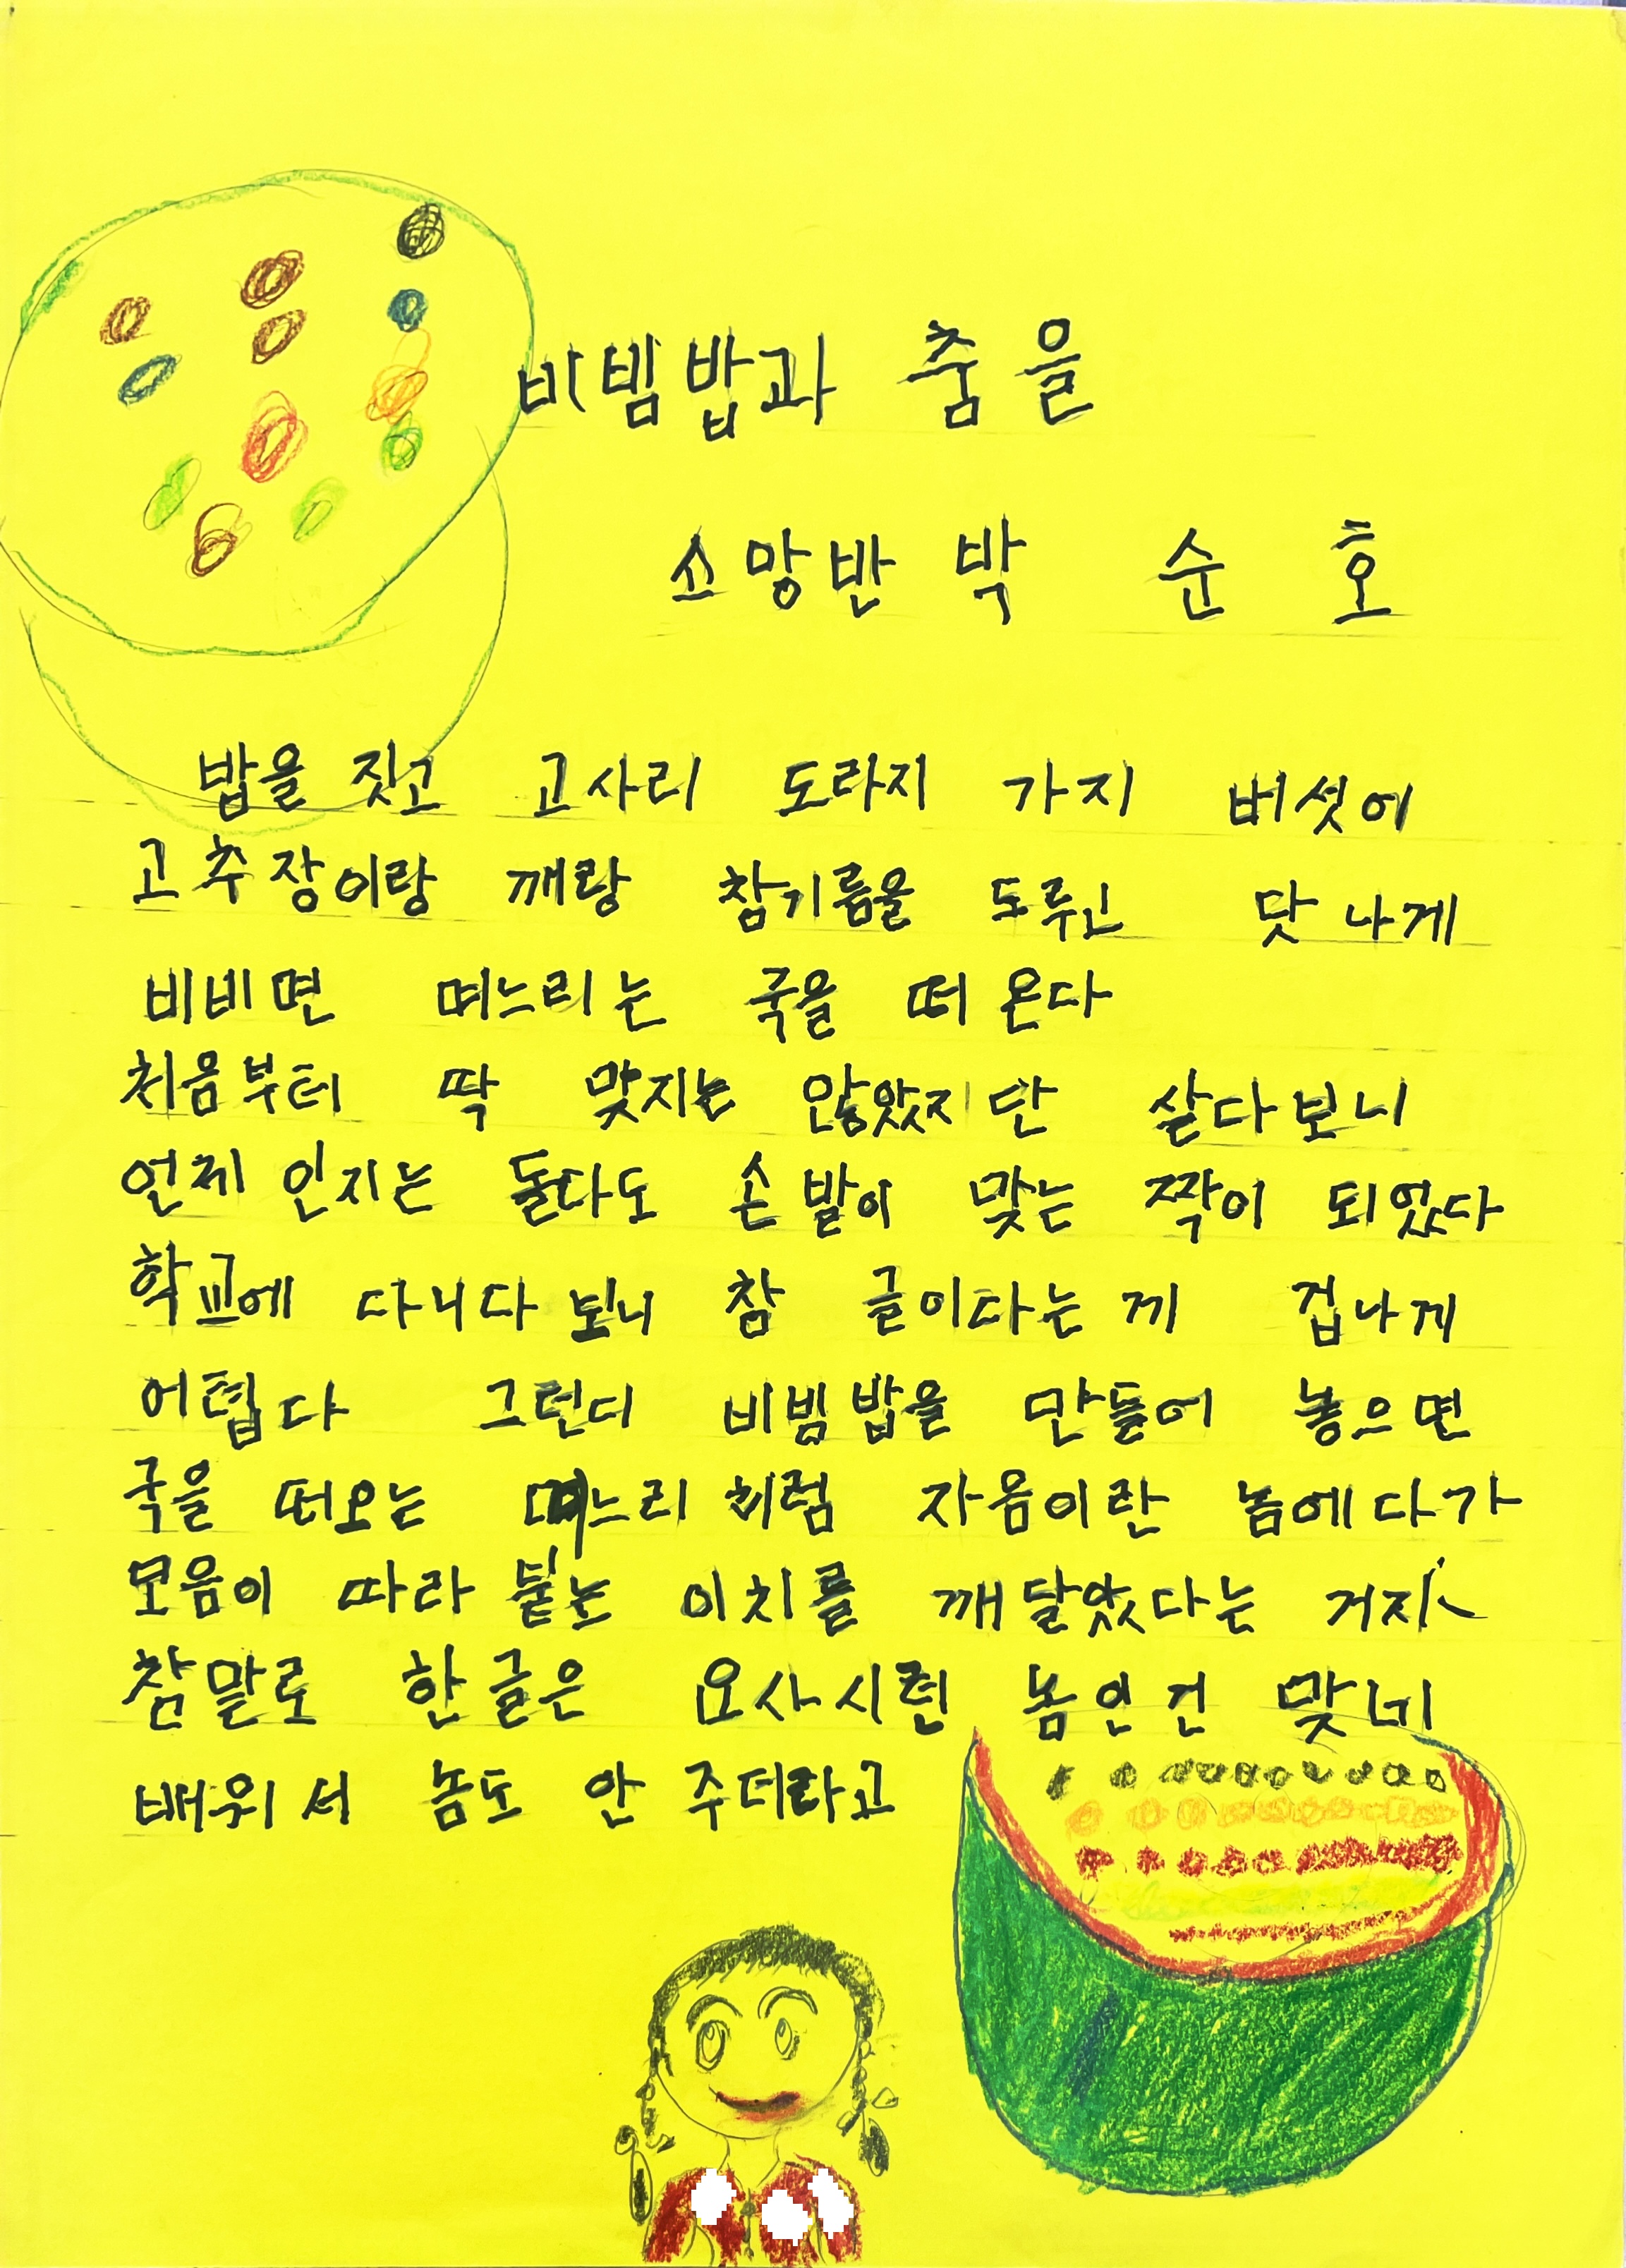 비빔밥과 춤을
소망반 박 순 호
밥을 짓고 고사리 도라지 가지 버섯에
고추장이랑 깨랑 참기름을 도루고 맛나게
비비면 며느리는 국을 떠 온다
처음부터 딱 맞지는 않았지만 살다보니
언제 인지는 둘다도 손발이 맞는 짝이 되었다
학교에 다니다 보니 참 글이다는 게 겁나게
어렵다 그런디 비빔밥을 만들어 놓으면
국을 떠오는 며느리 처럼 자음이란 놈에다가
모음이 따라 붙는 이치를 깨달았다는 거지
참말로 한글은 요사시런 놈인건 맞네
배워서 놈도 안 주더라고